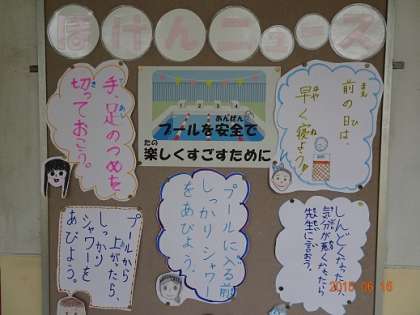 ほけんニュース
手足のつめを
て あし
切っておこう。
き
1 2 3 4
あんぜん
プールを安全で
たの
楽しくすごすために
前の日は、
まえ ひ
早く寝よう。
はや ね
プールから
上がったら、
しっかり
シャワーを
あびよう。
プールに入る前
しっかりシャワー
をあびよう。
しんどくなったり、
気分が悪くなったら
先生に言おう。
2015 06 16